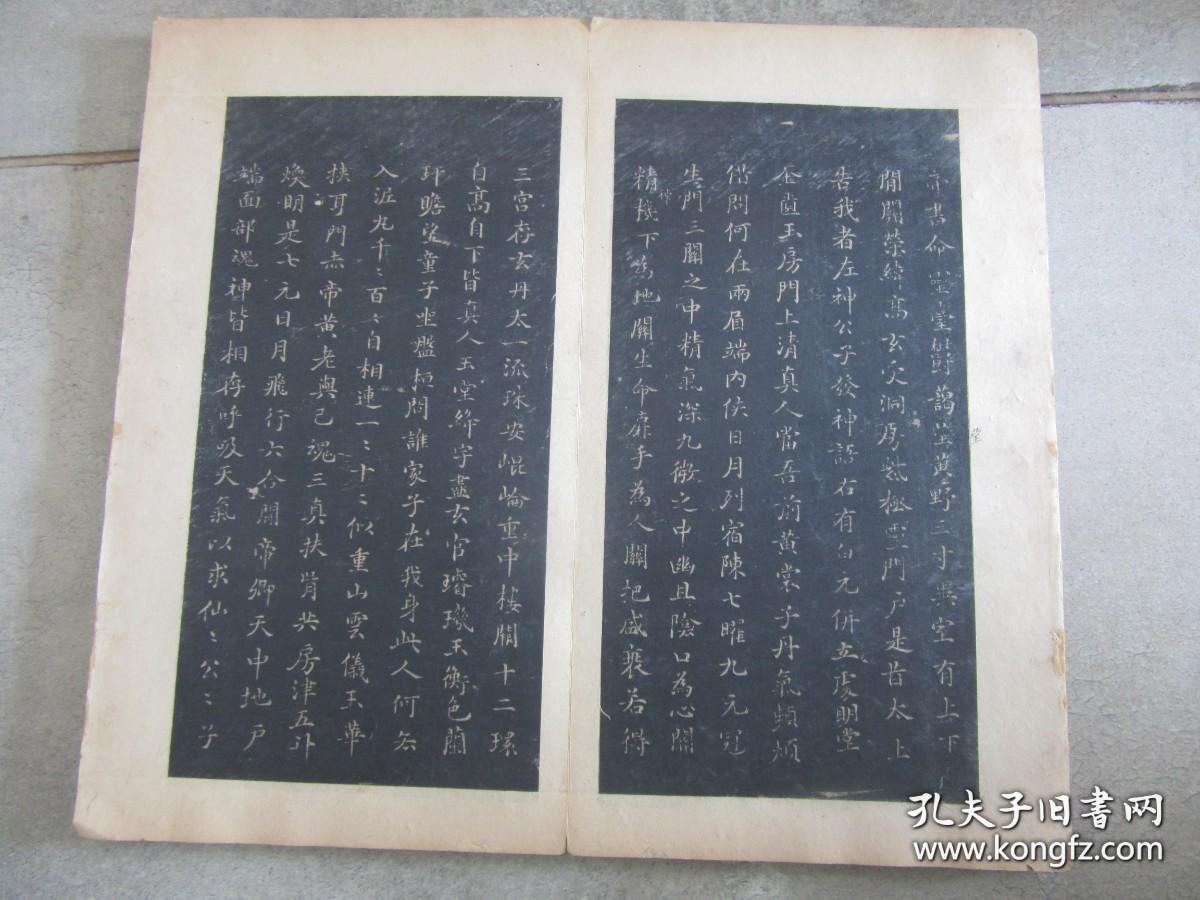 書命靈臺欝藹望黃野三寸異室有上下
閒關榮衛高玄受洞房紫極靈門戶是昔太上
告我者左神公子發神語右有白元併立處明堂
金匱玉房門上清真人當吾前黃裳子丹氣頻煩
借問何在兩眉端內俠日月列宿陳七曜九元冠
生門三關之中精氣深九微之中幽且陰口為心關
精機下為地關生命扉手為人關把盛衰若得
三宮存玄丹太一流珠安崐崘重中樓閣十二環
自高自下皆真人玉堂絳宇盡玄宮璿璣玉衡色蘭
玕瞻望童子坐盤桓問誰家子在我身此人何去
入泥丸千〻百〻自相連一〻十〻似重山雲儀玉華
挾耳門赤帝黃老與己魂三真扶胥共房津五斗
煥明是七元日月飛行六合間帝鄉天中地戶
端面部魂神皆相存呼吸天氣以求仙〻公〻子
孔夫子旧书网
www.kongfz.com